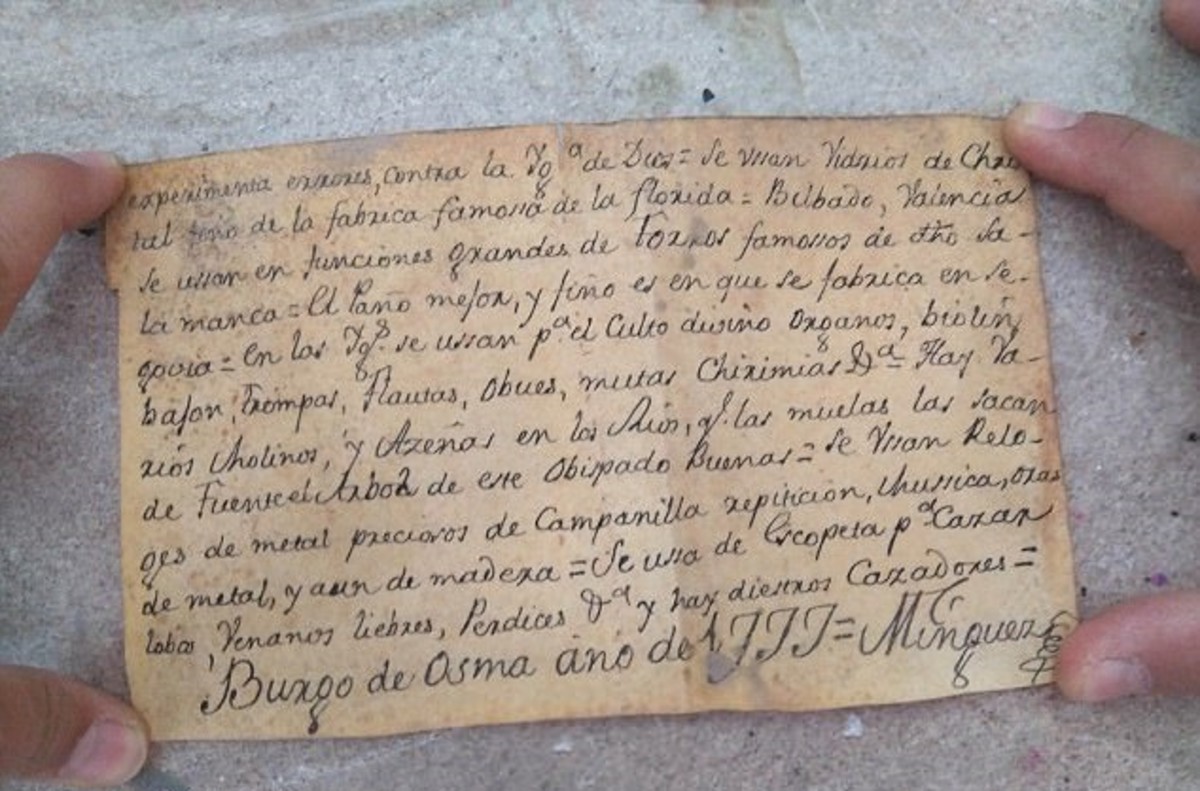 experimenta errores, contra la Ygª de Dios = Se vssan Vidrios de Chris
tal fino de la fabrica famossa de la florida = Bilbado, Valencia
se ussan en funciones grandes de Torros famossos de dho Sa-
lamanca = El Paño mejor, y fino es en que se fabrica en Se-
govia = en las Ygˢ se ussan pª el Culto divino Organos, biolin,
bajon, Trompas, flautas, Obues, mutas Chirimias &ª = Hay Va-
rios Molinos, y Azeñas en los Rios, q. las muelas las sacan
de Fuentcel Arbol de este Obispado Buenas = Se Vssan Relo-
ges de metal preciosos de Campanilla repiticion, Mussica, oras
de metal, y aun de madera = Se ussa de Escopeta pª Cazar
lobos, Venanos liebres, Perdices &ª y hay diestros Cazadores =
Burgo de Osma año de 1777 = Minguez